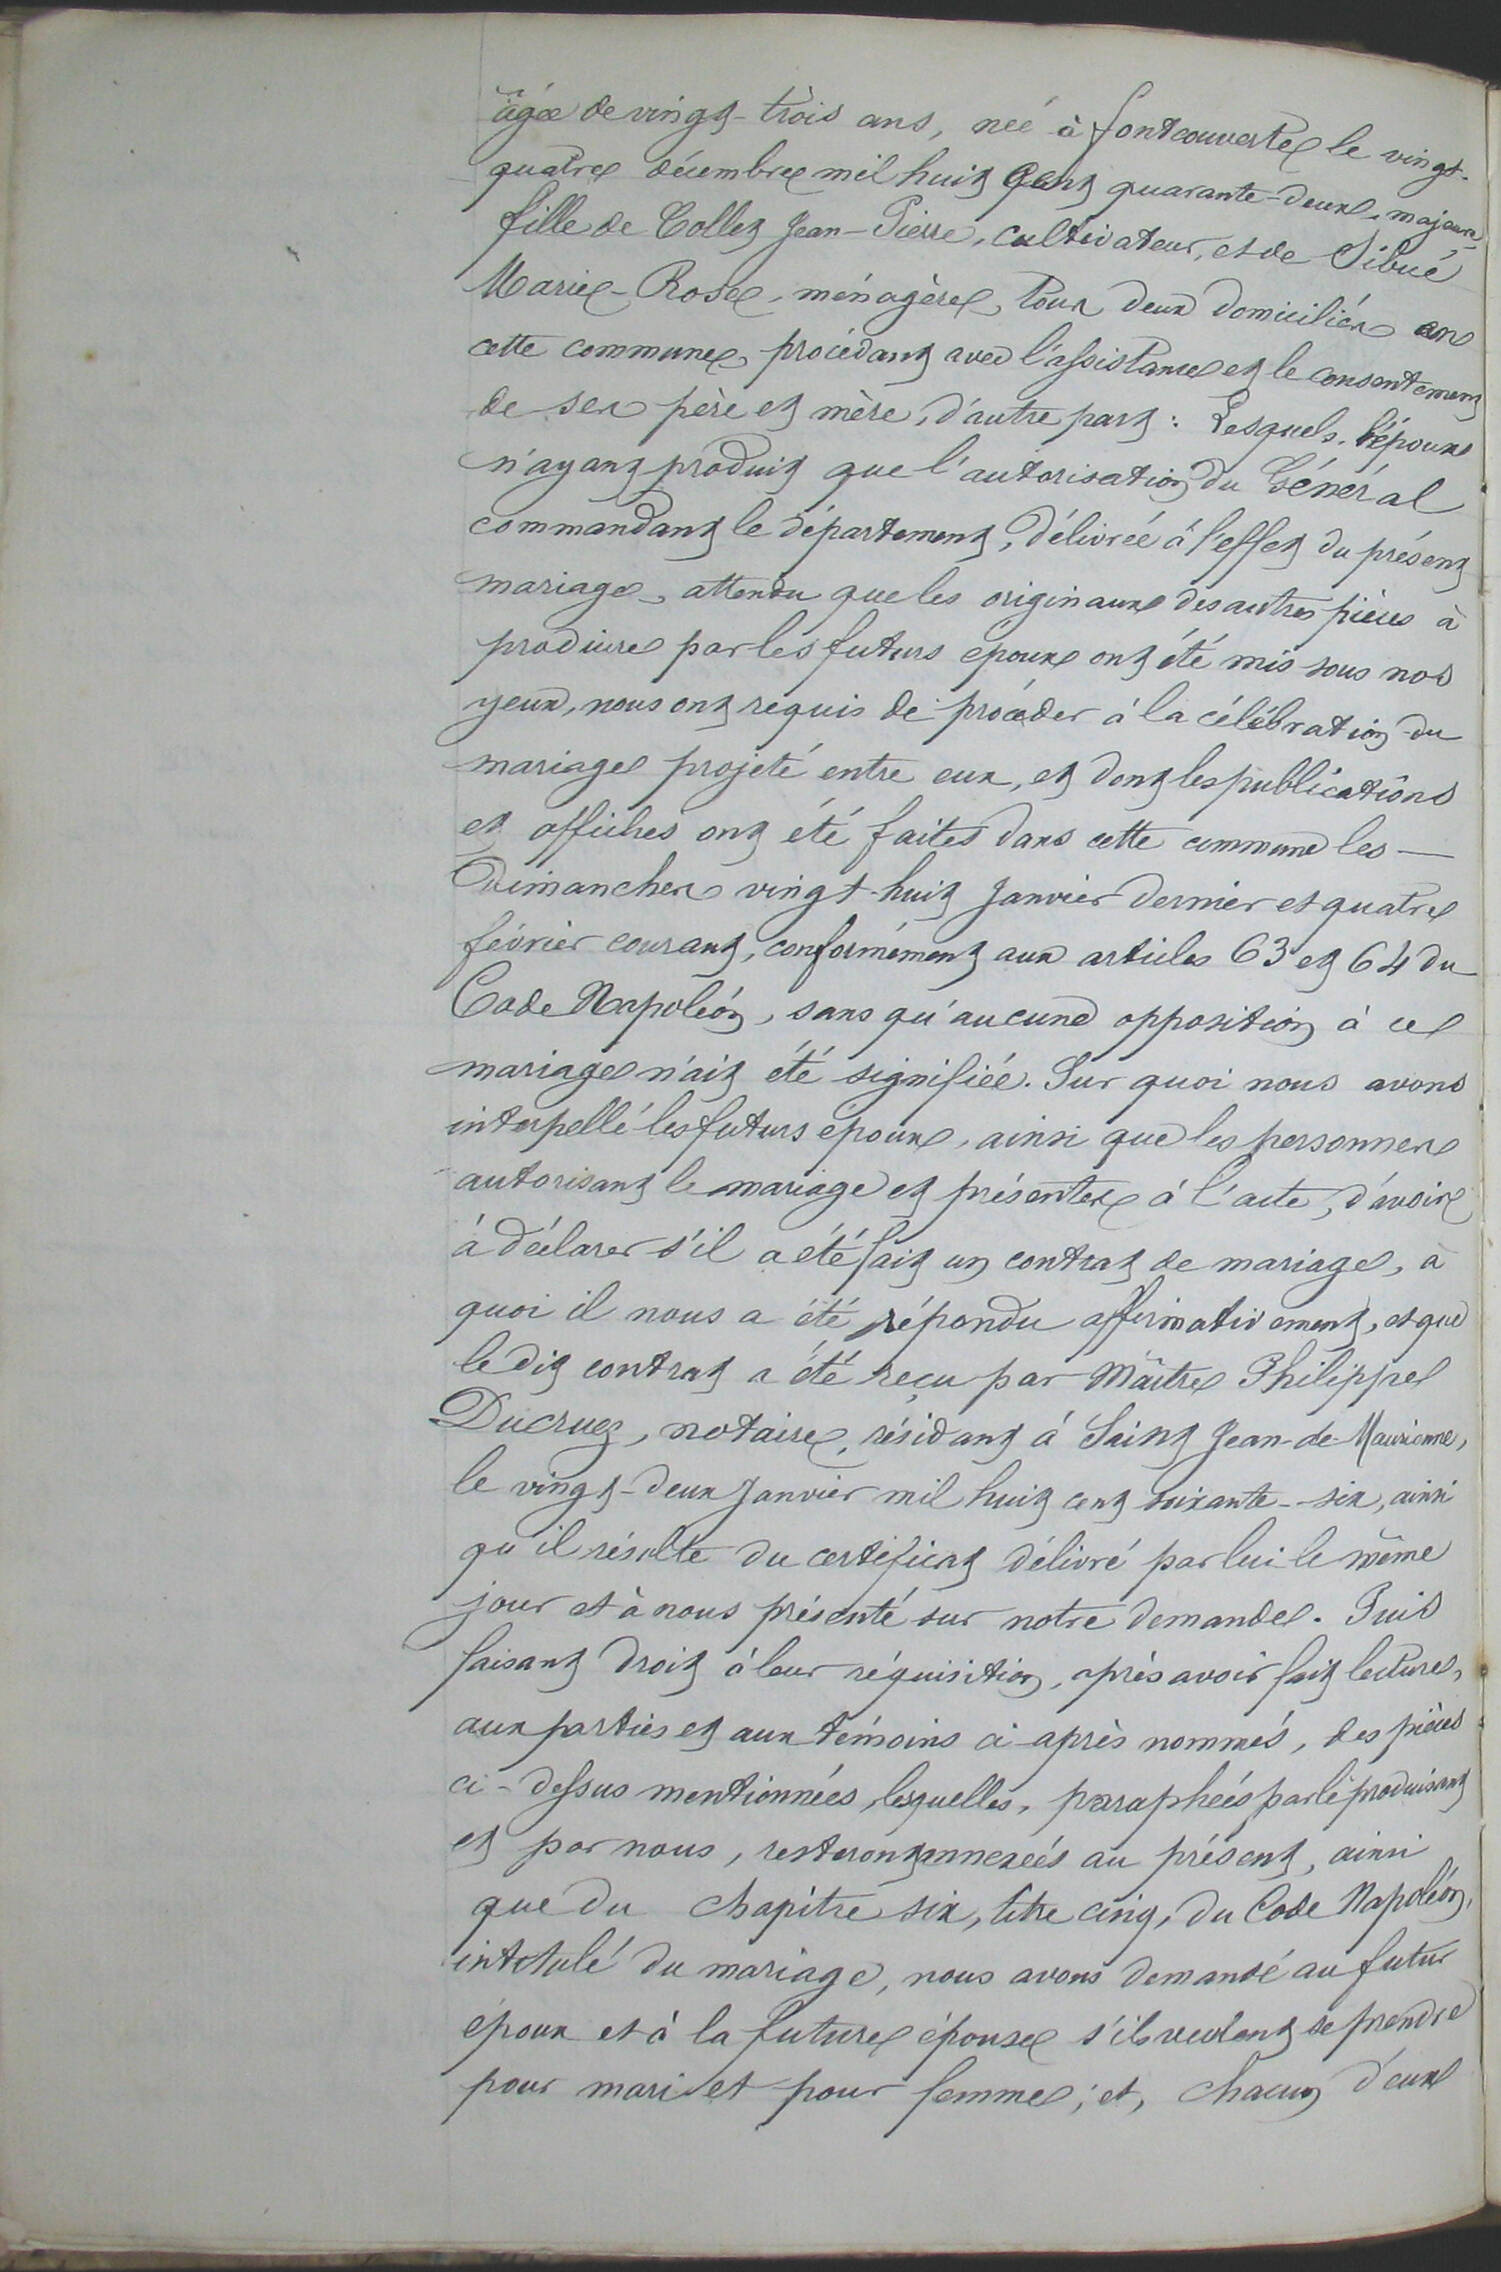 âgée de vingt-trois ans, née à Fontcouverte le vingt-
quatre décembre mil huit cent quarante-deux, majeure,
fille de Collet Jean-Pierre, cultivateur, et de Sibué
Marie-Rose, ménagère, tous deux domiciliés en
cette commune, procédant avec l'assistance et le consentement
de ses père et mère, d'autre part : Lesquels, l'époux
n'ayant produit que l'autorisation du Général
commandant le département, délivrée à l'effet du présent
mariage, attendu que les originaux des autres pièces à
produire par les futurs époux ont été mis sous nos
yeux, nous ont requis de procéder à la célébration du
mariage projeté entre eux, et dont les publications
et affiches ont été faites dans cette commune les —
Dimanches vingt-huit Janvier dernier et quatre
février courant, conformément aux articles 63 et 64 du
Code Napoléon, sans qu'aucune opposition à ce
mariage n'ait été signifiée. Sur quoi nous avons
interpellé les futurs époux, ainsi que les personnes
autorisant le mariage et présentes à l'acte, d'avoir
à déclarer s'il a été fait un contrat de mariage, à
quoi il nous a été répondu affirmativement, et que
le dit contrat a été reçu par Maître Philippe
Ducruez, notaire, résidant à Saint Jean-de-Maurienne,
le vingt-deux Janvier mil huit cent soixante-six, ainsi
qu'il résulte du certificat délivré par lui le même
jour et à nous présenté sur notre demande. Puis
faisant droit à leur réquisition, après avoir fait lecture,
aux parties et aux témoins ci-après nommés, des pièces
ci-dessus mentionnées, lesquelles, paraphées par le produisant
et par nous, resteront annexées au présent, ainsi
que du chapitre six, titre cinq, du Code Napoléon,
intitulé du mariage, nous avons demandé au futur
époux et à la future épouse s'ils veulent se prendre
pour mari et pour femme ; et, chacun d'eux